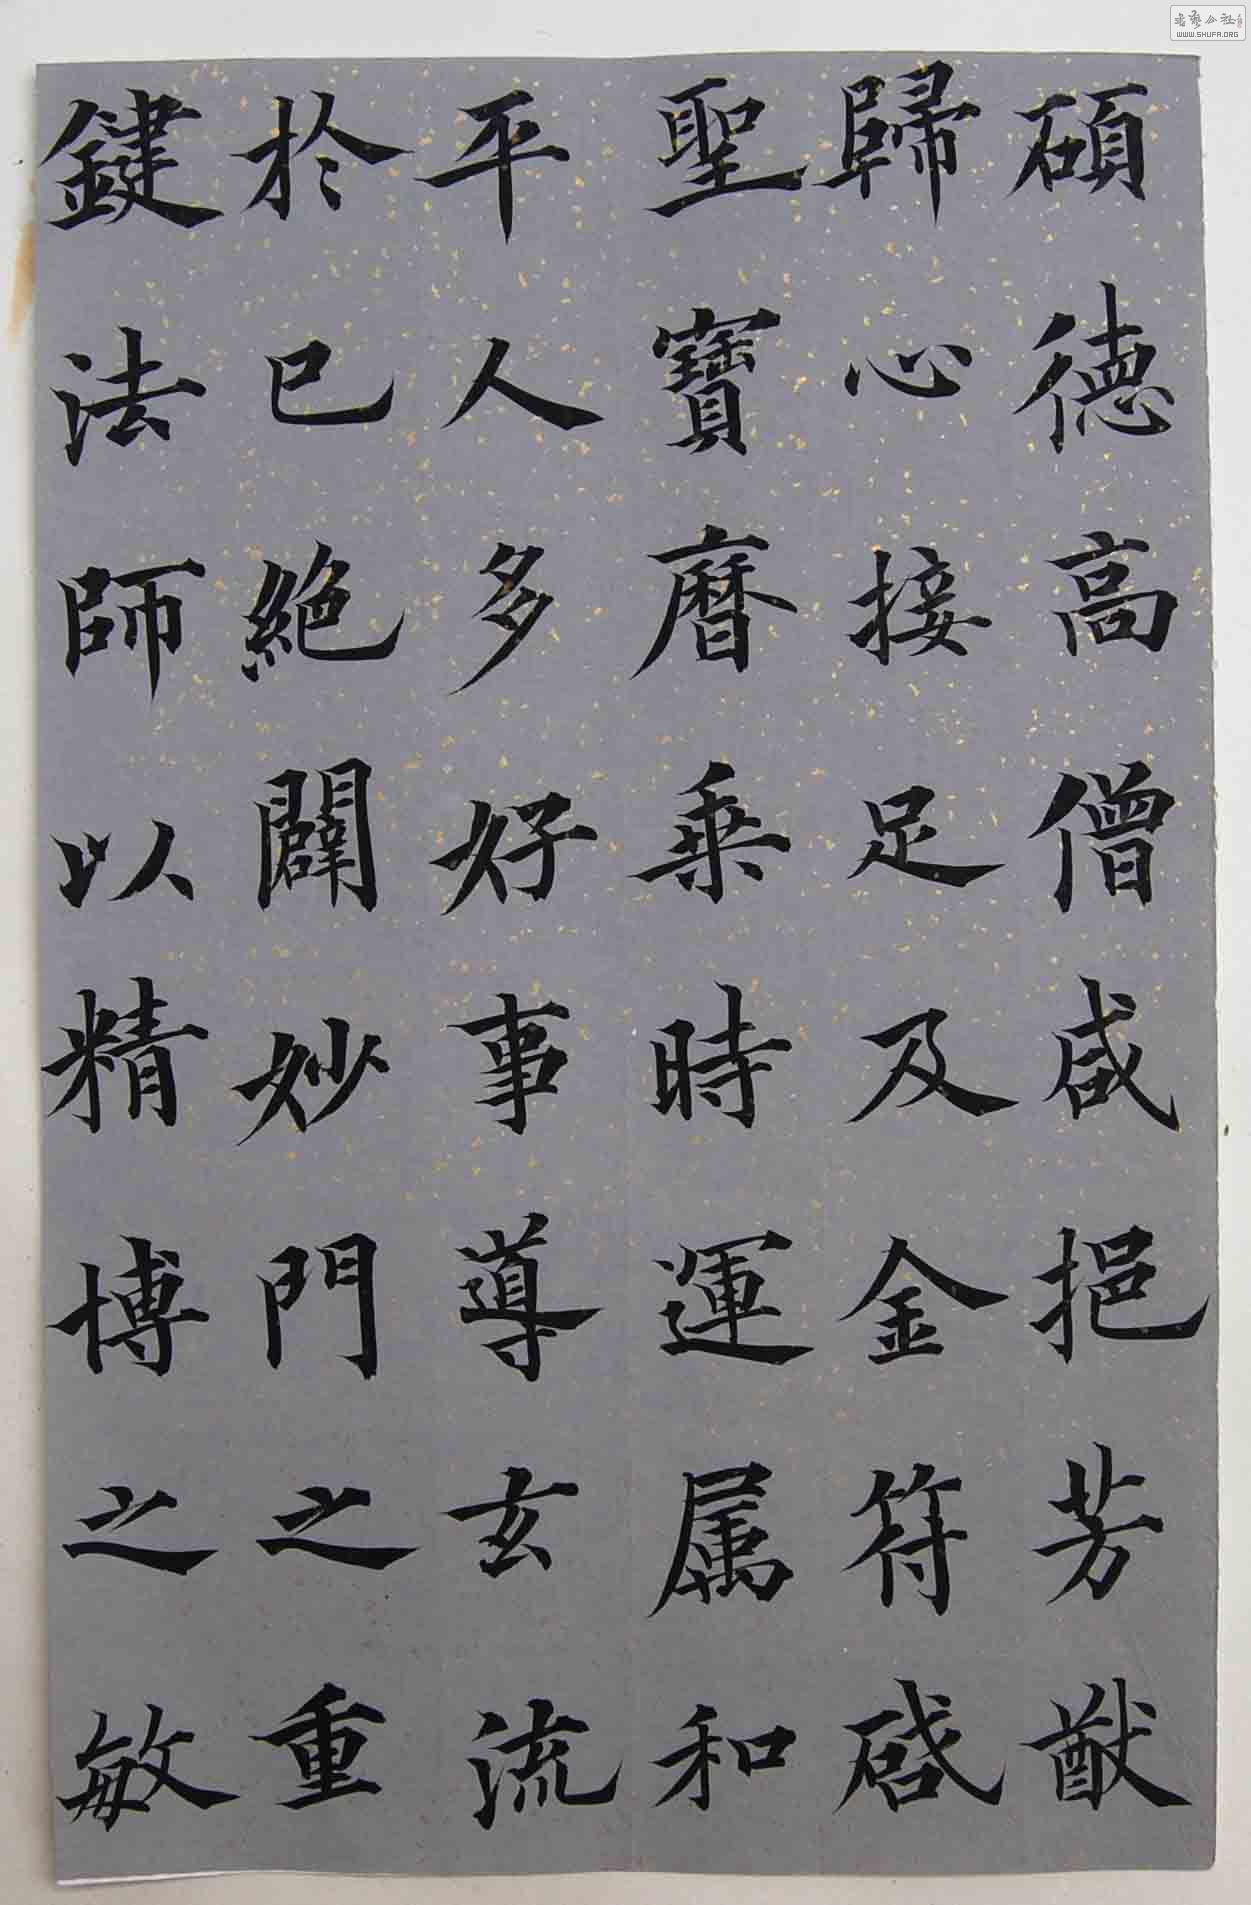 硕德高僧咸挹芳猷
歸心接足及金符啓
聖寶曆乗時運属和
平人多好事導玄流
於已絶闢妙門之重
鍵法師以精博之敏
WWW.SHUFA.ORG